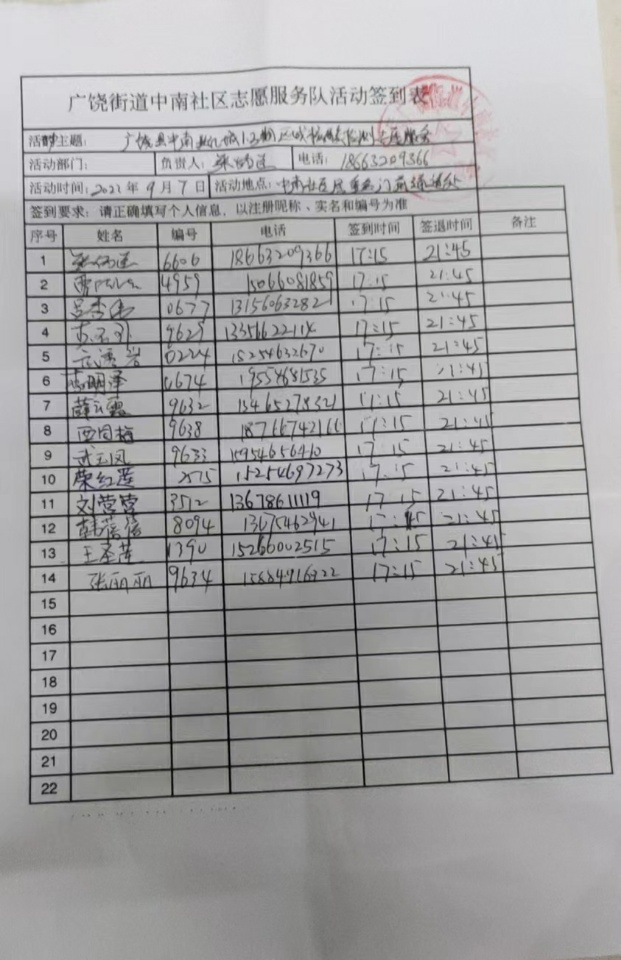 广饶街道中南社区志愿服务队活动签到表
活动主题： 广饶县中南世纪城1.2期区域核酸检测志愿服务
活动部门： 负责人： 电话： 18663209366
活动时间：2021年9月7日 活动地点：
签到要求：请正确填写个人信息，以注册昵称、实名和编号为准
序号 姓名 编号 电话 签到时间 签退时间 备注
1 6606 18663209366 17:15 21:45
2 4959 15066081859 17:15 21:45
3 0677 13156063282 17:15 21:45
4 9629 17:15 21:45
5 0224 15254632670 17:15 21:45
6 0674 19554681535 17:15 21:45
7 薛云霞 9632 13465278321 17:15 21:45
8 9638 17:15 21:45
9 武玉凤 9633 15954656410 17:15 21:45
10 荣红莲 2575 15254697273 17:15 21:45
11 刘营营 3512 13678611119 17:15 21:45
12 韩蓓蓓 8094 13675462941 17:45 21:45
13 王圣莲 1390 15266002515 17:15 21:45
14 张丽丽 9634 15884916322 17:15 21:45
15
16
17
18
19
20
21
22